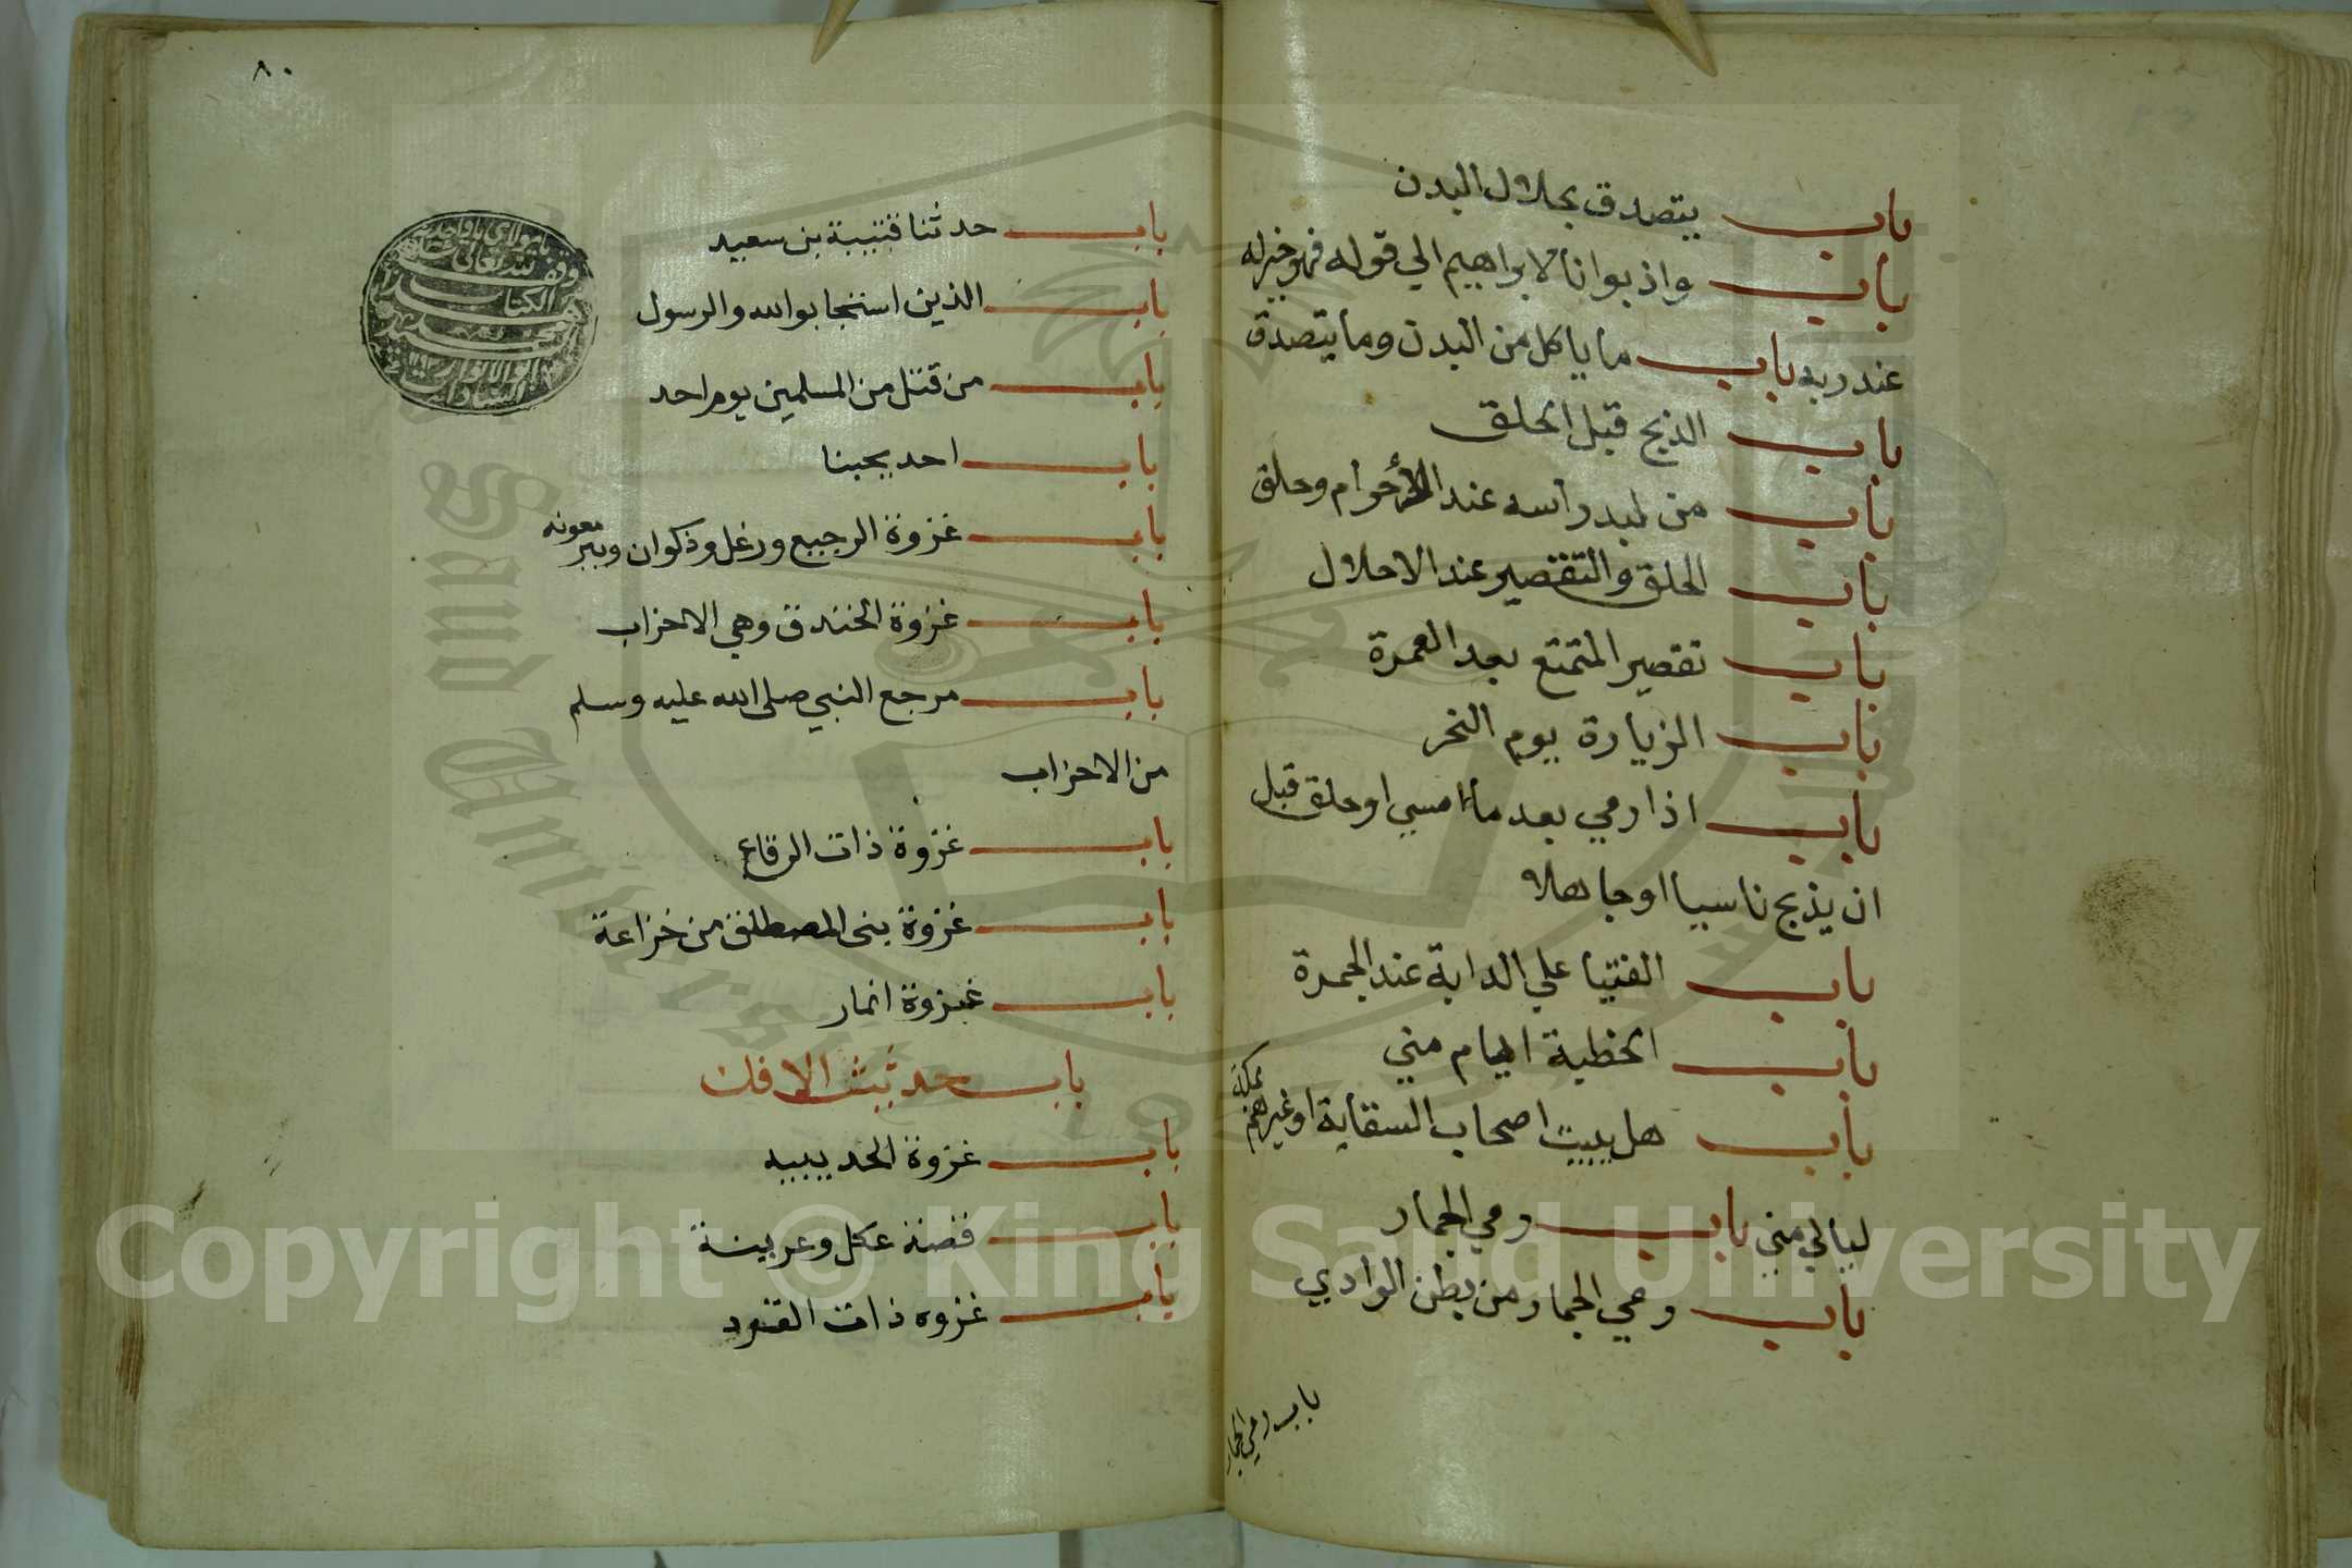 باب يتصدق بجلال البدن
باب واذ بوانا لابراهيم الي قوله فهو خير له
عند ربه باب ما ياكل من البدن وما يتصدق
باب الذبح قبل الحلق
باب من لبد راسه عند الأحرام وحلق
باب الحلق والتقصير عند الاحلال
باب تقصير المتمتع بعد العمرة
باب الزيارة يوم النحر
باب اذا رمي بعد ما امسي او حلق قبل
ان يذبح ناسيا او جاهلا
باب الفتيا علي الدابة عند الجمرة
باب الخطبة ايام مني
باب هل يبيت اصحاب السقاية او غيرهم بمكة
ليالي مني باب رمي الجمار
باب رمي الجمار من بطن الوادي
باب رمي الجمار
٨٠
باب حدثنا قتيبة بن سعيد
باب الذين استجابوا لله والرسول
باب من قتل من المسلمين يوم احد
باب احد يحبنا
باب غزوة الرجيع ورعل وذكوان وبير معونه
باب غزوة الخندق وهي الاحزاب
باب مرجع النبي صلى الله عليه وسلم
من الاحزاب
باب غزوة ذات الرقاع
باب غزوة بنى المصطلق من خزاعة
باب غزوة انمار
باب حديث الافك
باب غزوة الحديبيه
باب قصة عكل وعرينة
باب غزوه ذات القرد
Copyright © King Saud University
Saud University